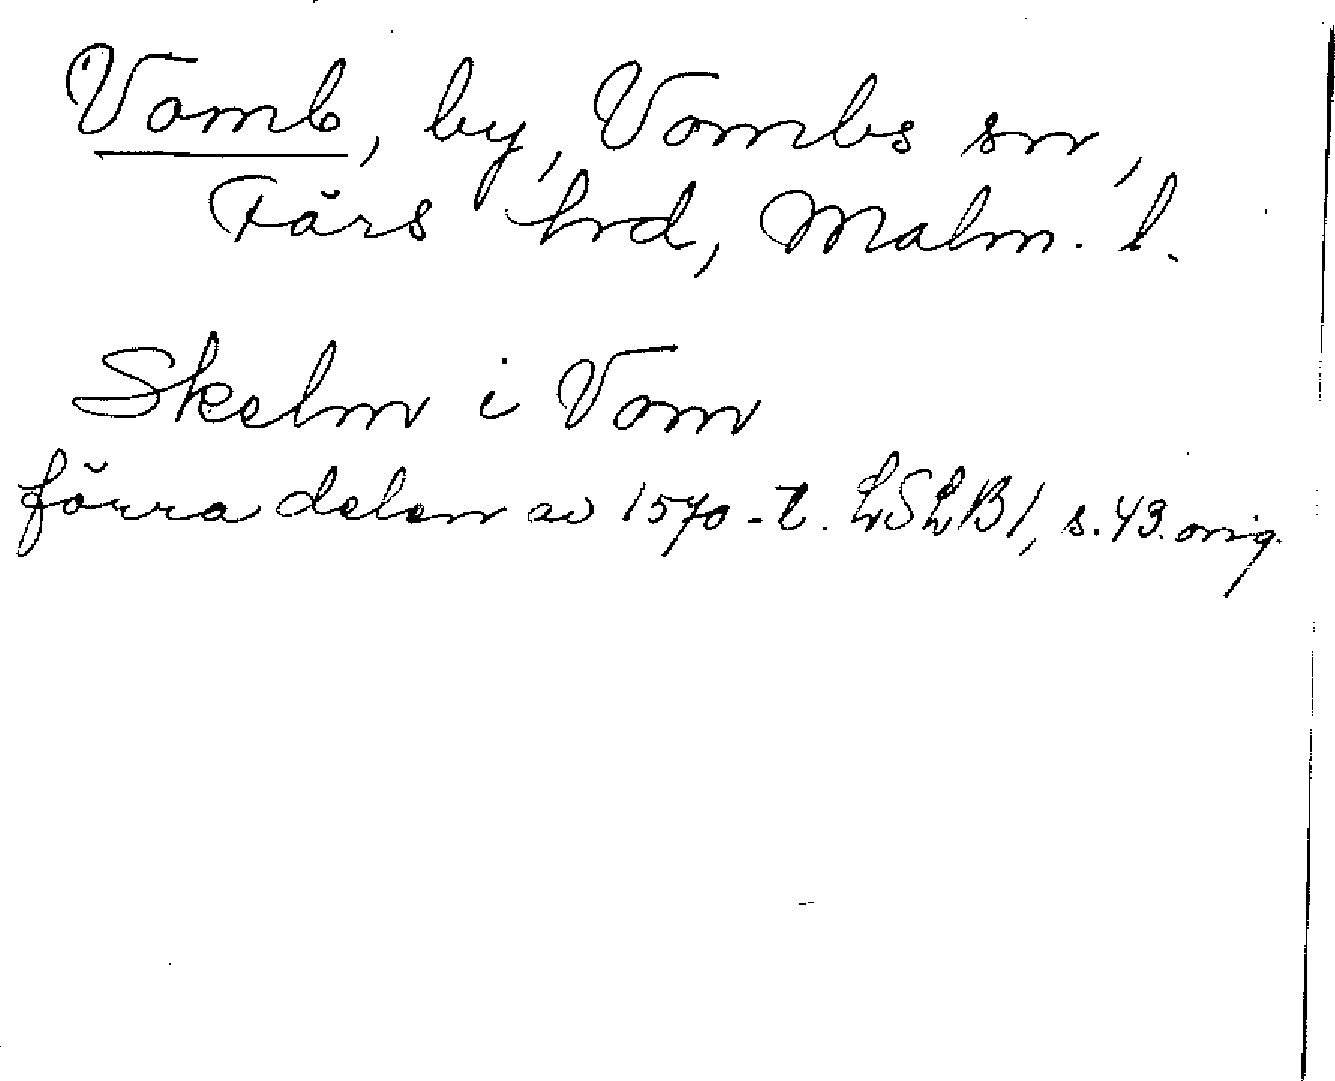 Vomb, by, Vombs sn,
Färs hrd, Malm. l.
Skelm i Vom
förra delen av 1570-t. LSLB1, s. 43. orig.